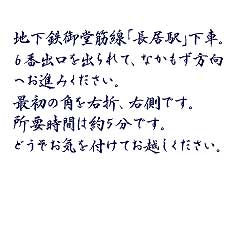 地下鉄御堂筋線｢長居駅｣下車。
6番出口を出られて、なかもず方向
へお進みください。
最初の角を右折、右側です。
所要時間は約5分です。
どうぞお気を付けてお越しください。